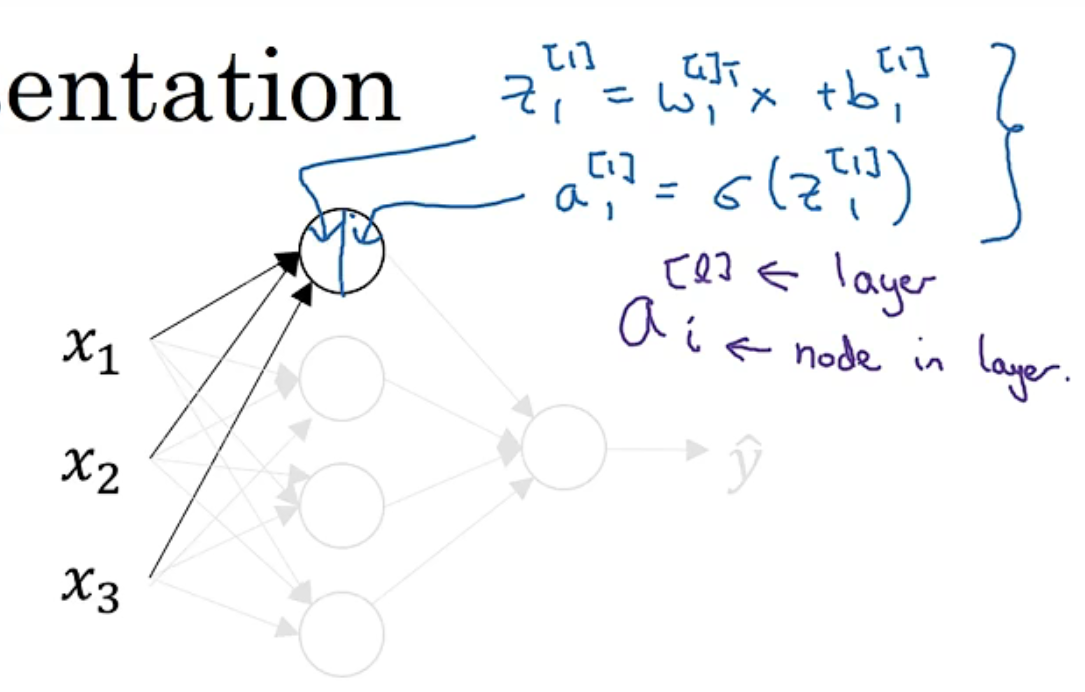 sentation
z₁^[1] = w₁^[1]T x + b₁^[1]
a₁^[1] = σ(z₁^[1])
a_i^[l] ← layer
← node in layer.
x₁
x₂
x₃
ŷ